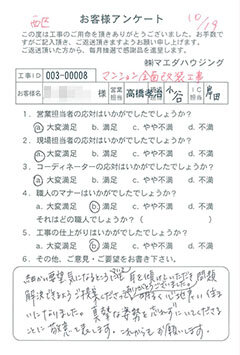 西区
10/19
お客様アンケート
この度は工事のご用命を頂きありがとうございました。お手数で
すがご記入頂き、ご返送頂きますようお願い申し上げます。
ご返送頂いた方から、毎月抽選で感謝品を進呈します。
㈱マエダハウジング
工事ID 003-00008 マンション全面改装工事
お客様名 様 営業担当 高橋孝治 小谷 IC担当
1. 営業担当者の応対はいかがでしたでしょうか?
a.大変満足 b.満足 c.やや不満 d.不満
2. 現場担当者の応対はいかがでしたでしょうか?
a.大変満足 b.満足 c.やや不満 d.不満
3. コーディネーターの応対はいかがでしたでしょうか?
a.大変満足 b.満足 c.やや不満 d.不満
4. 職人のマナーはいかがでしたでしょうか?
a.大変満足 b.満足 c.やや不満 d.不満
それはどの職人でしょうか?( )
5. 工事の仕上がりはいかがでしたでしょうか?
a.大変満足 b.満足 c.やや不満 d.不満
6. その他、ご意見・ご要望をお書き下さい。
細かい要望、気になるところに耳を傾けていただき問題
解決できるようご提案いただき、ありがとうございました。明るく心地よい住ま
いになりました。真摯な姿勢を忘れずにいてくださる
ことに敬意を表します。これからもお願いします。